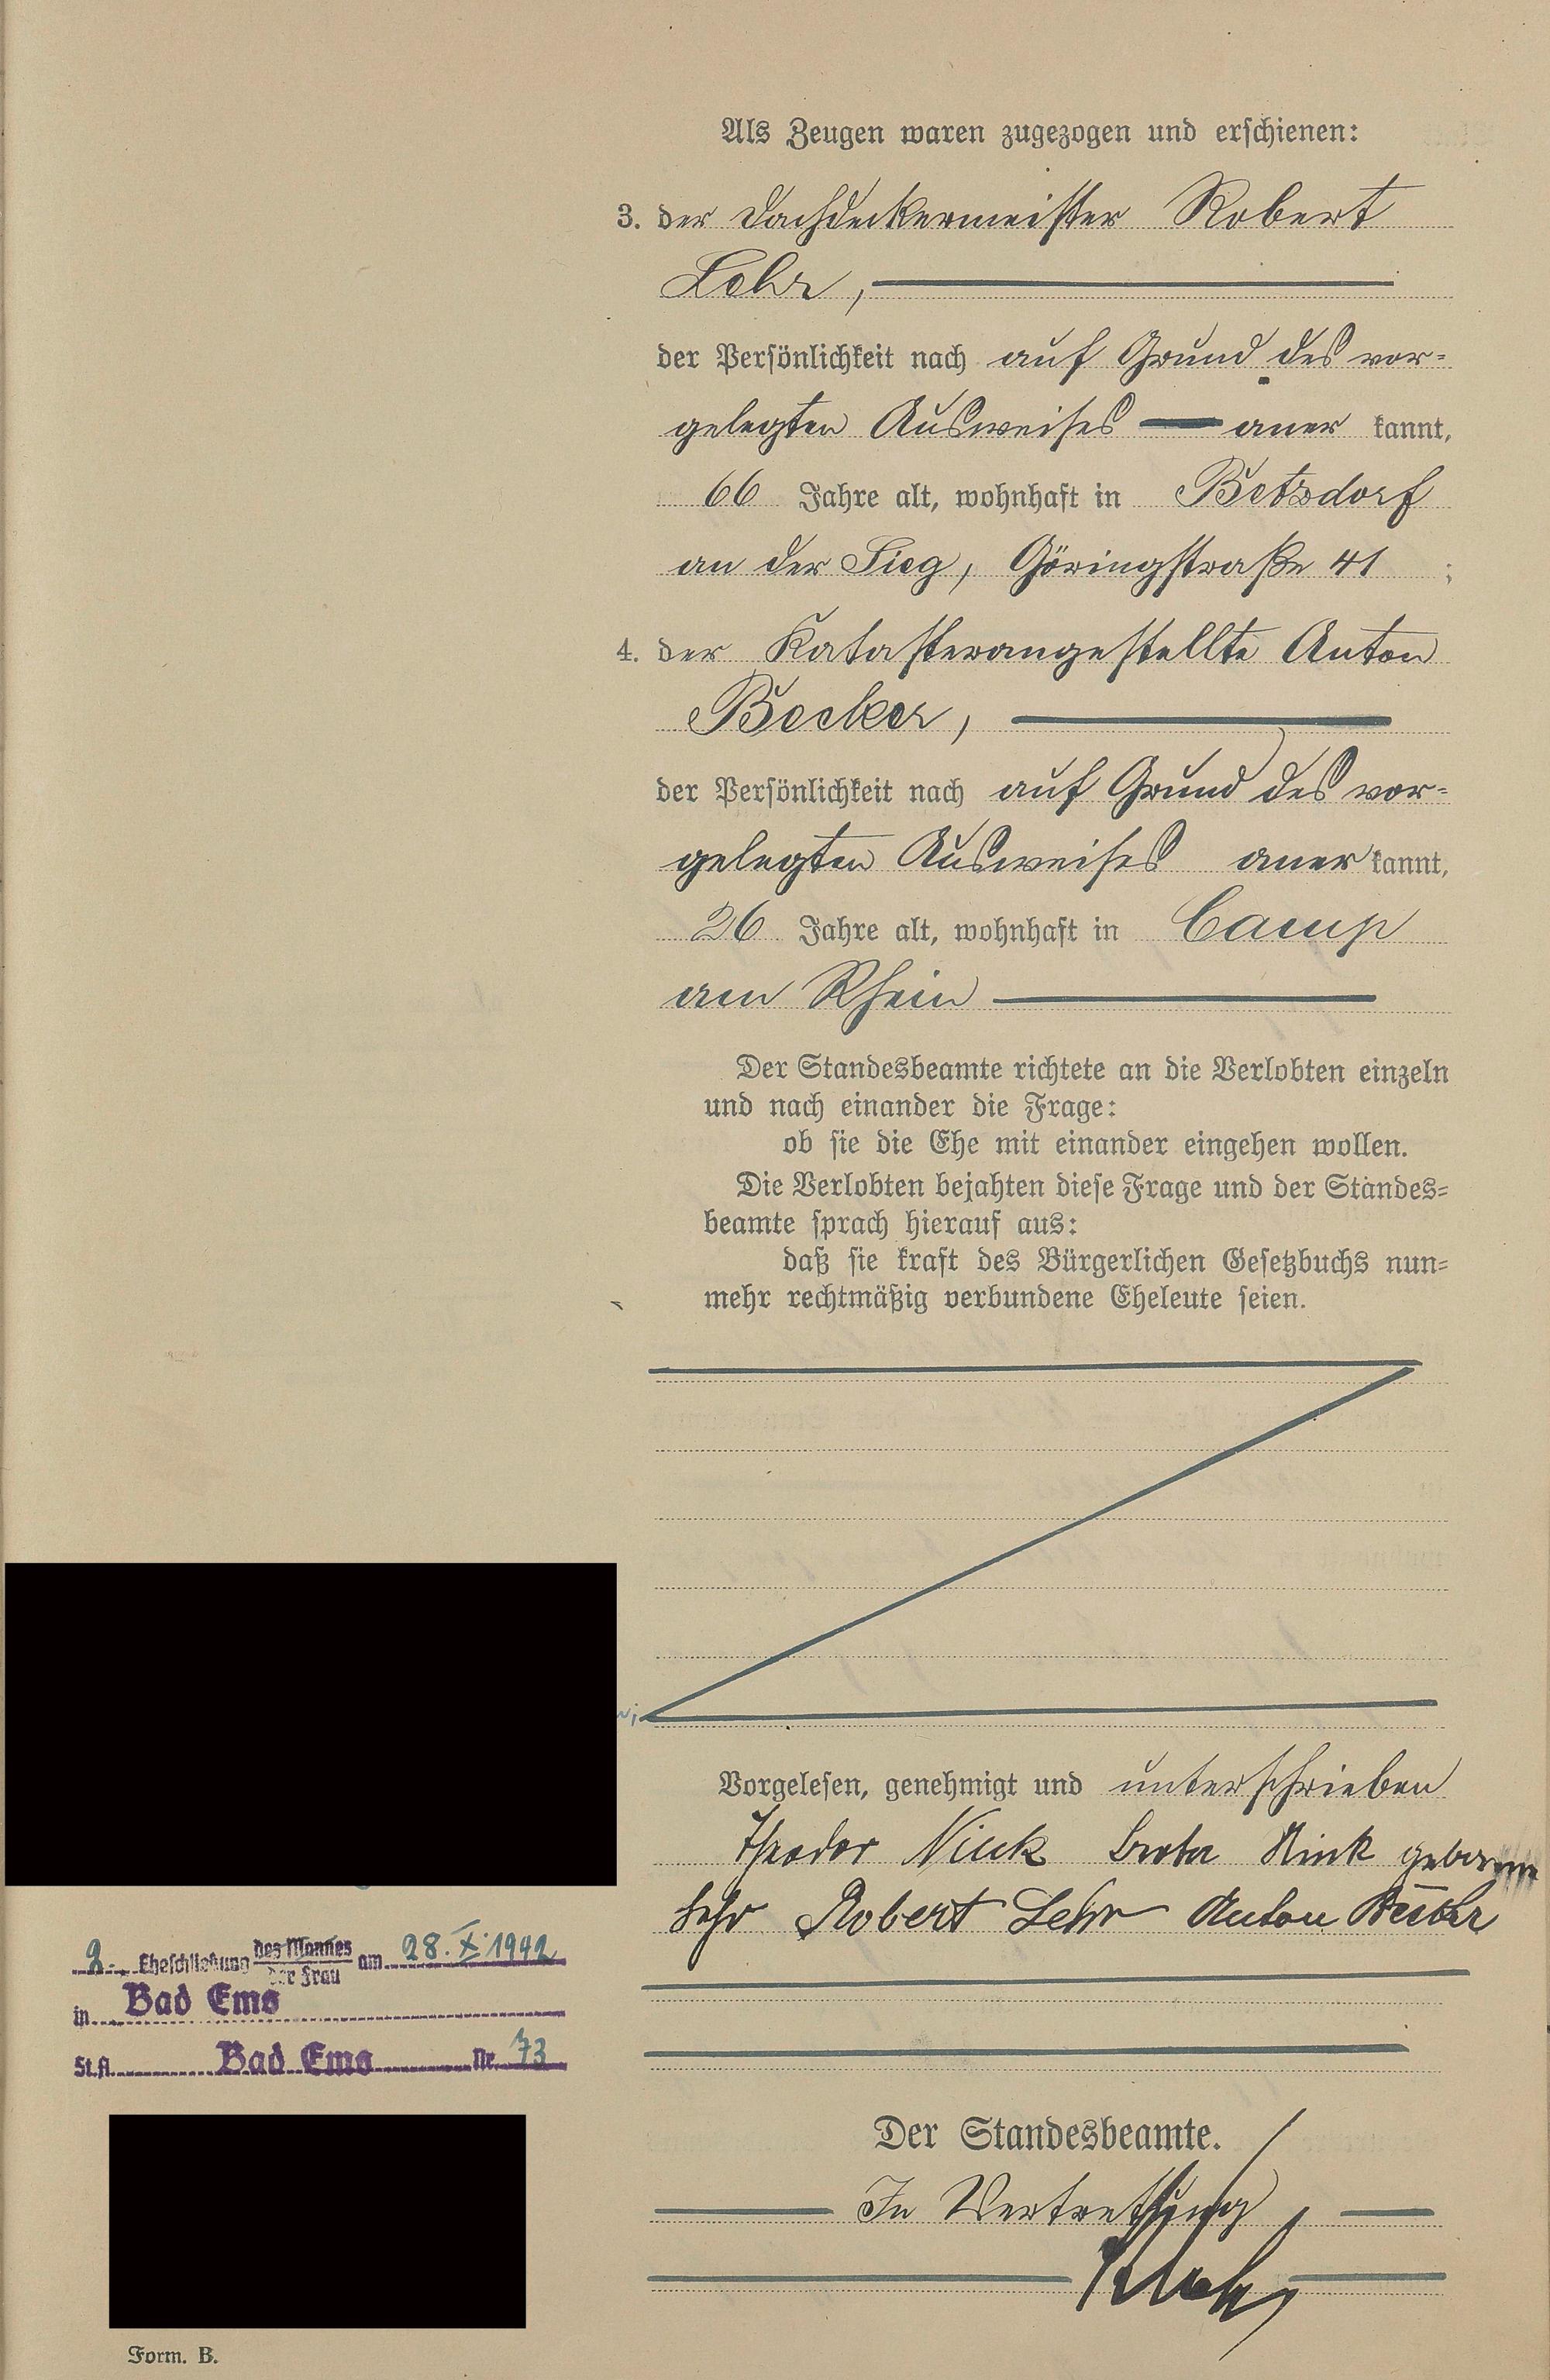 Als Zeugen waren zugezogen und erschienen:
3. der Dachdeckermeister Robert
Lehr,
der Persönlichkeit nach auf Grund des vor=
gelegten Ausweises aner kannt,
66 Jahre alt, wohnhaft in Betzdorf
an der Sieg, Göringstraße 41 ;
4. der Katasterangestellte Anton
Becker,
der Persönlichkeit nach auf Grund des vor=
gelegten Ausweises aner kannt,
26 Jahre alt, wohnhaft in Camp
am Rhein
Der Standesbeamte richtete an die Verlobten einzeln
und nach einander die Frage:
ob sie die Ehe mit einander eingehen wollen.
Die Verlobten bejahten diese Frage und der Standes=
beamte sprach hierauf aus:
daß sie kraft des Bürgerlichen Gesetzbuchs nun=
mehr rechtmäßig verbundene Eheleute seien.
Vorgelesen, genehmigt und unterschrieben
Theodor Nink Nink geborene
Lehr Robert Lehr Anton Becker
2. Eheschließung des Mannes am 28.X.1942
der Frau
in Bad Ems
St.A. Bad Ems Nr. 73
Der Standesbeamte.
In Vertretung
Form. B.